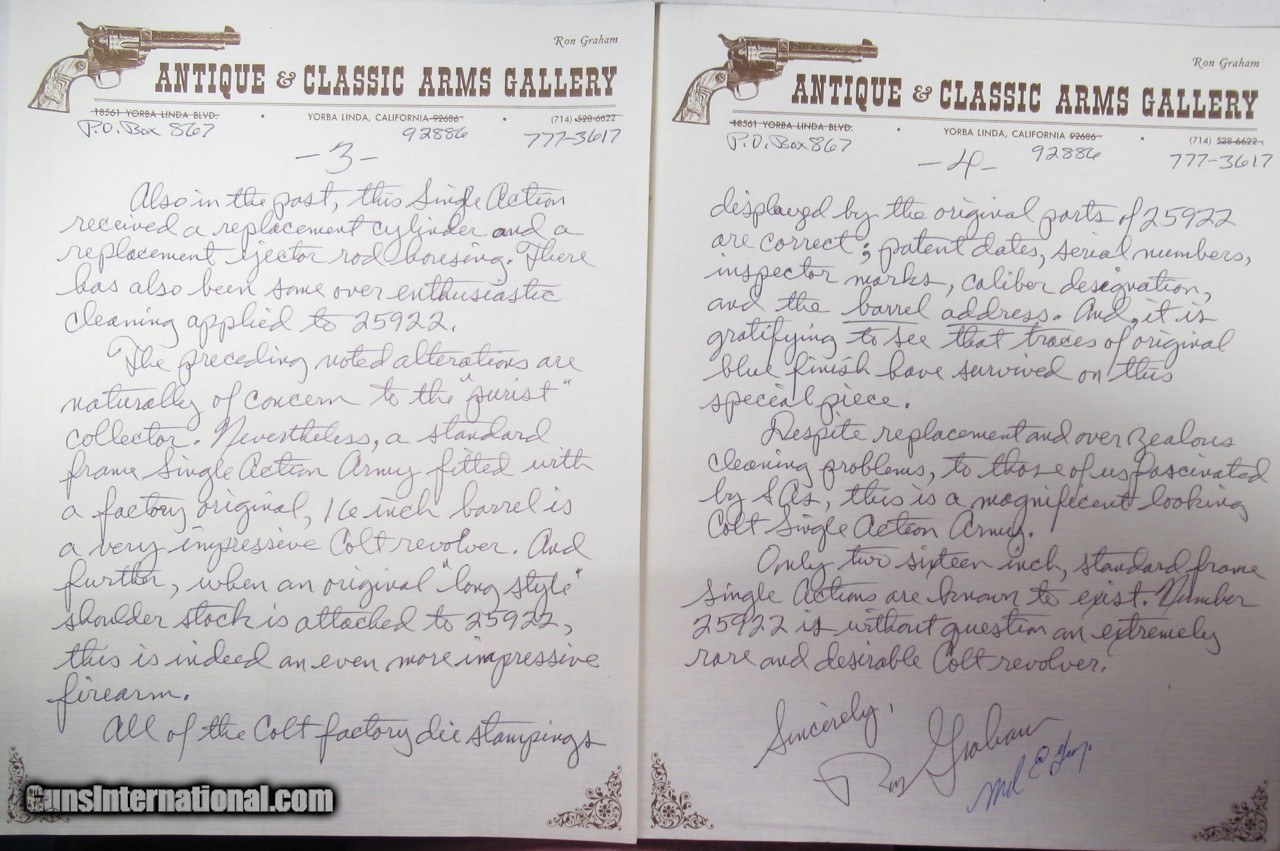 Ron Graham
ANTIQUE & CLASSIC ARMS GALLERY
18561 YORBA LINDA BLVD. • YORBA LINDA, CALIFORNIA 92686 • (714) 528-6622
P.O. Box 867 92886 777-3617
-3-
Also in the past, this Single Action
received a replacement cylinder and a
replacement ejector rod housing. There
has also been some over enthusiastic
cleaning applied to 25922.
The preceding noted alterations are
naturally of concern to the "purist"
collector. Nevertheless, a standard
frame Single Action Army fitted with
a factory original, 16 inch barrel is
a very impressive Colt revolver. And
further, when an original "long style"
shoulder stock is attached to 25922,
this is indeed an even more impressive
firearm.
All of the Colt factory die stampings
Ron Graham
ANTIQUE & CLASSIC ARMS GALLERY
18561 YORBA LINDA BLVD. • YORBA LINDA, CALIFORNIA 92686 • (714) 528-6622
P.O. Box 867 92886 777-3617
-4-
displayed by the original parts of 25922
are correct; patent dates, serial numbers,
inspector marks, caliber designation,
and the barrel address. And, it is
gratifying to see that traces of original
blue finish have survived on this
special piece.
Despite replacement and over zealous
cleaning problems, to those of us fascinated
by SAs, this is a magnificent looking
Colt Single Action Army.
Only two sixteen inch, standard frame
Single Actions are known to exist. Number
25922 is without question an extremely
rare and desirable Colt revolver.
Sincerely,
Ron Graham
GunsInternational.com